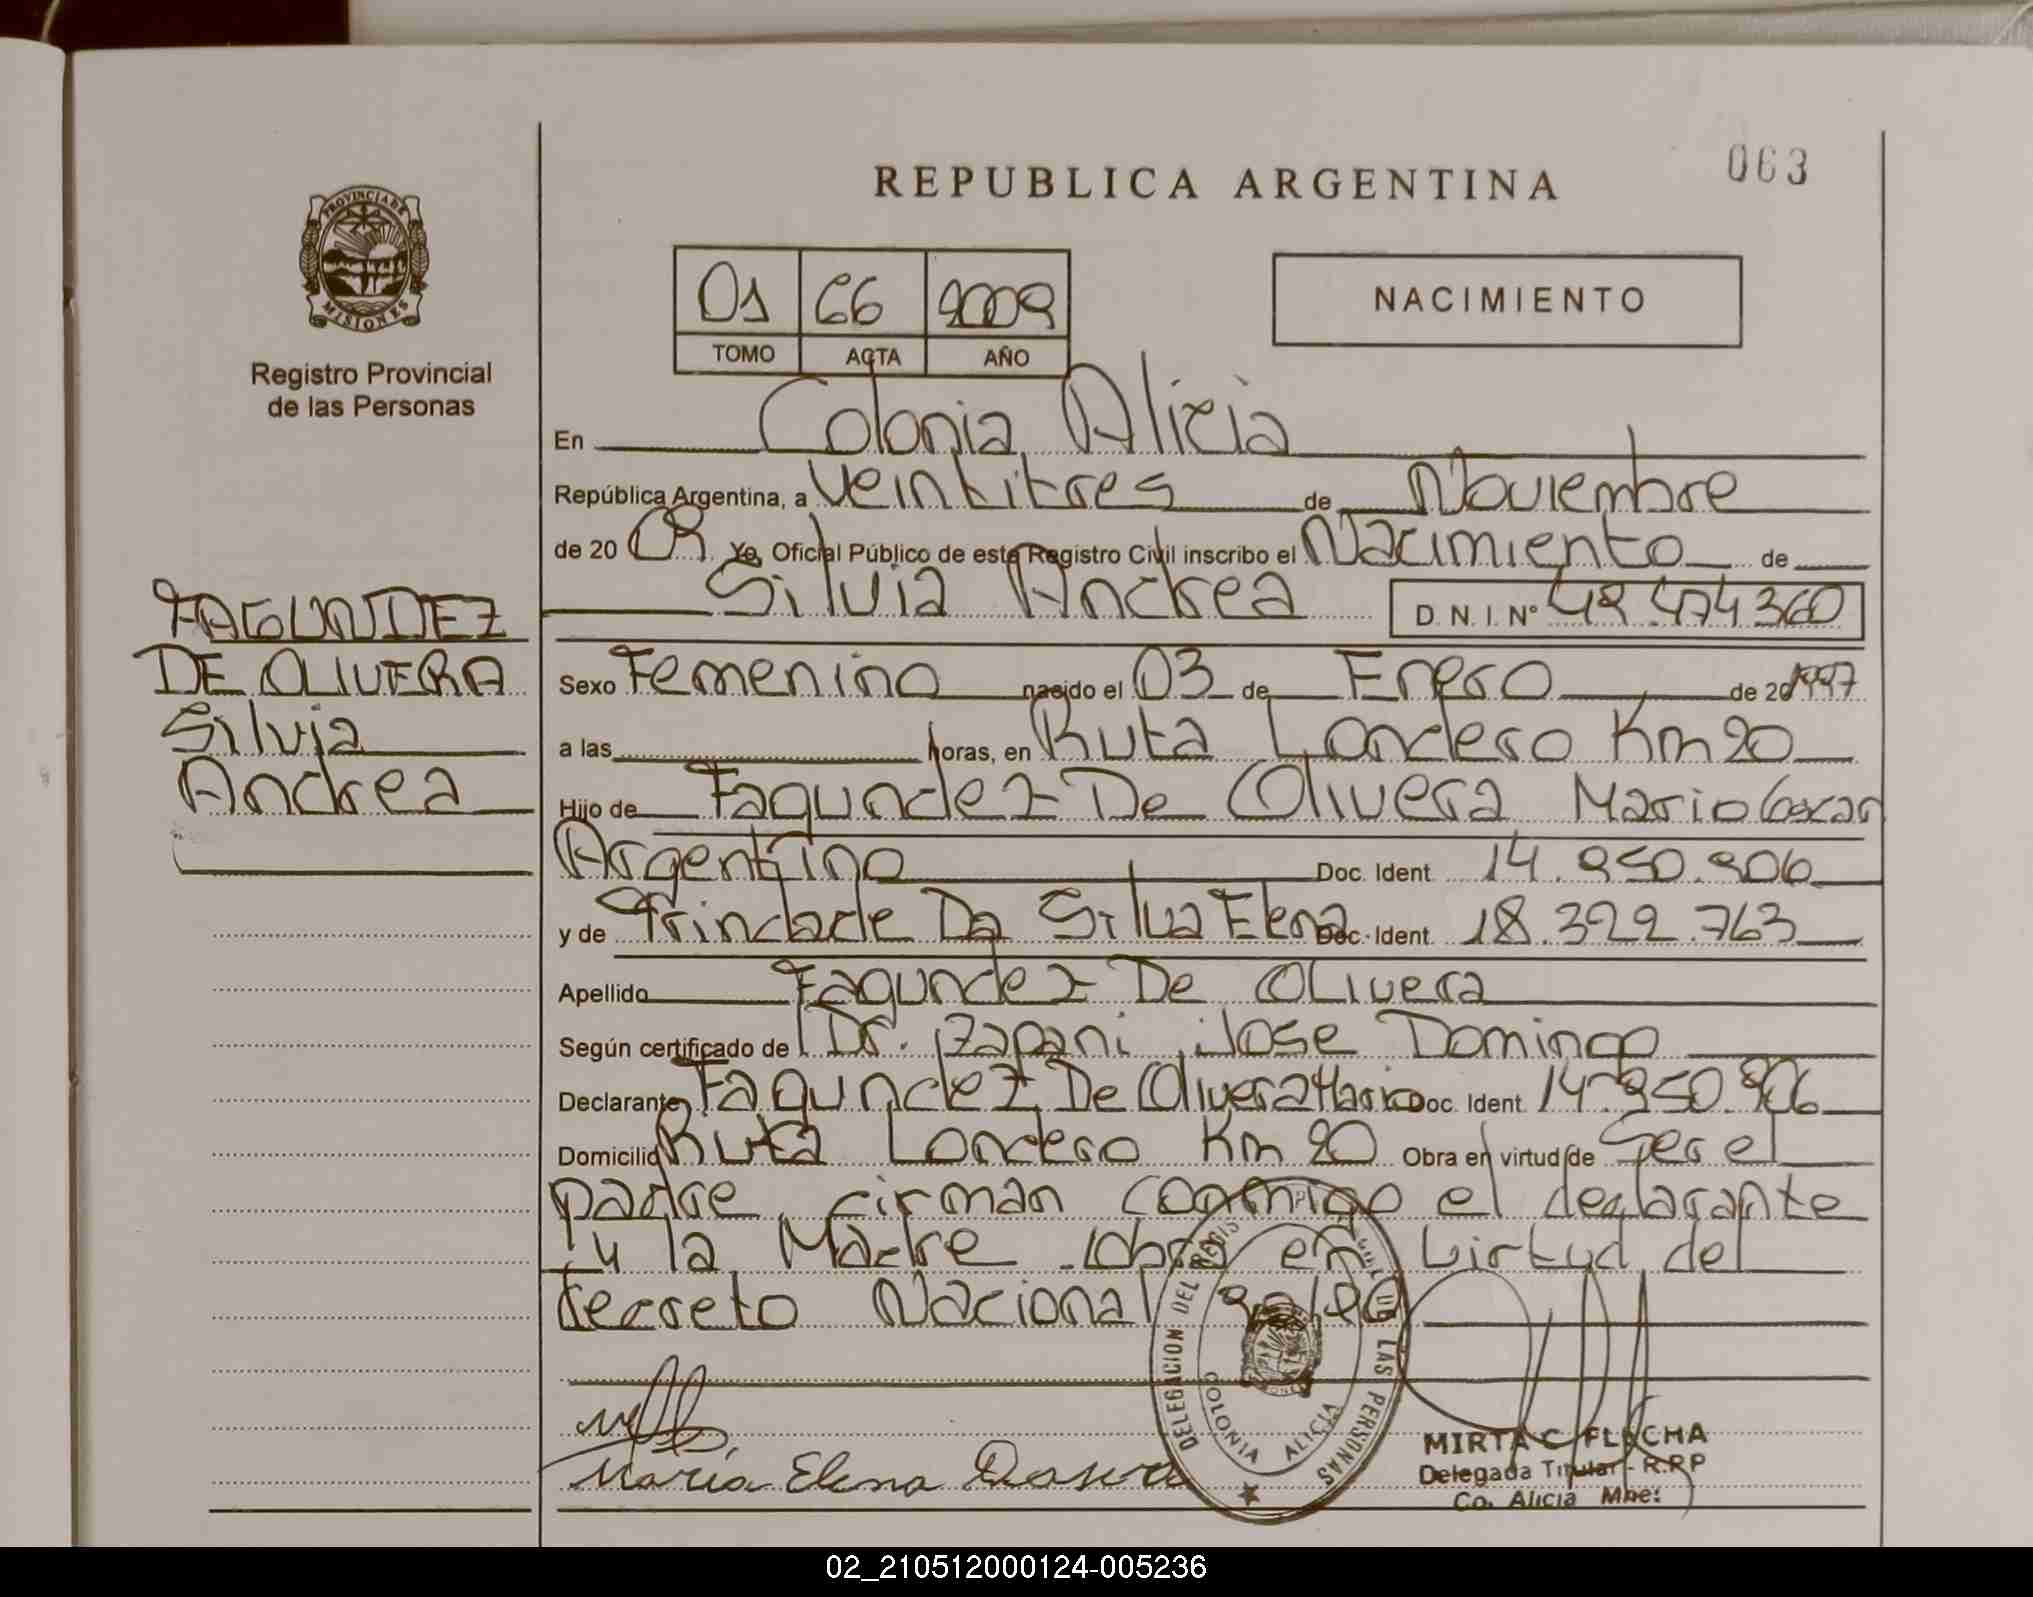 REPUBLICA ARGENTINA
063
PROVINCIA DE
MISIONES
Registro Provincial
de las Personas
01 66 2009
TOMO ACTA AÑO
NACIMIENTO
En Colonia Alicia
República Argentina, a Veintitres de Noviembre
de 20 09 Yo, Oficial Público de este Registro Civil inscribo el Nacimiento de
Silvia Andrea D. N. I. N° 49.474.360
FAGUNDEZ
DE OLIVERA
Silvia
Andrea
Sexo Femenino nacido el 03 de Enero de 20 1997
a las horas, en Ruta Londero Km 20
Hijo de Fagundez De Olivera Mario Oscar
Argentino Doc. Ident. 14.950.906
y de Trindade Da Silva Elena Doc. Ident. 18.392.763
Apellido Fagundez De Olivera
Según certificado de Dr. Zapani Jose Domingo
Declarante Fagundez De Olivera Mario Doc. Ident. 14.950.906
Domicilio Ruta Londero Km 20 Obra en virtud de Ser el
padre, firman conmigo el declarante
y la Madre obra en Virtud del
decreto Nacional
María Elena
DELEGACION DEL REGIS LAS PERSONAS
COLONIA ALICIA
MIRTA C. FLECHA
Delegada Titular - R.P.P
Co. Alicia Mnes.
02_210512000124-005236